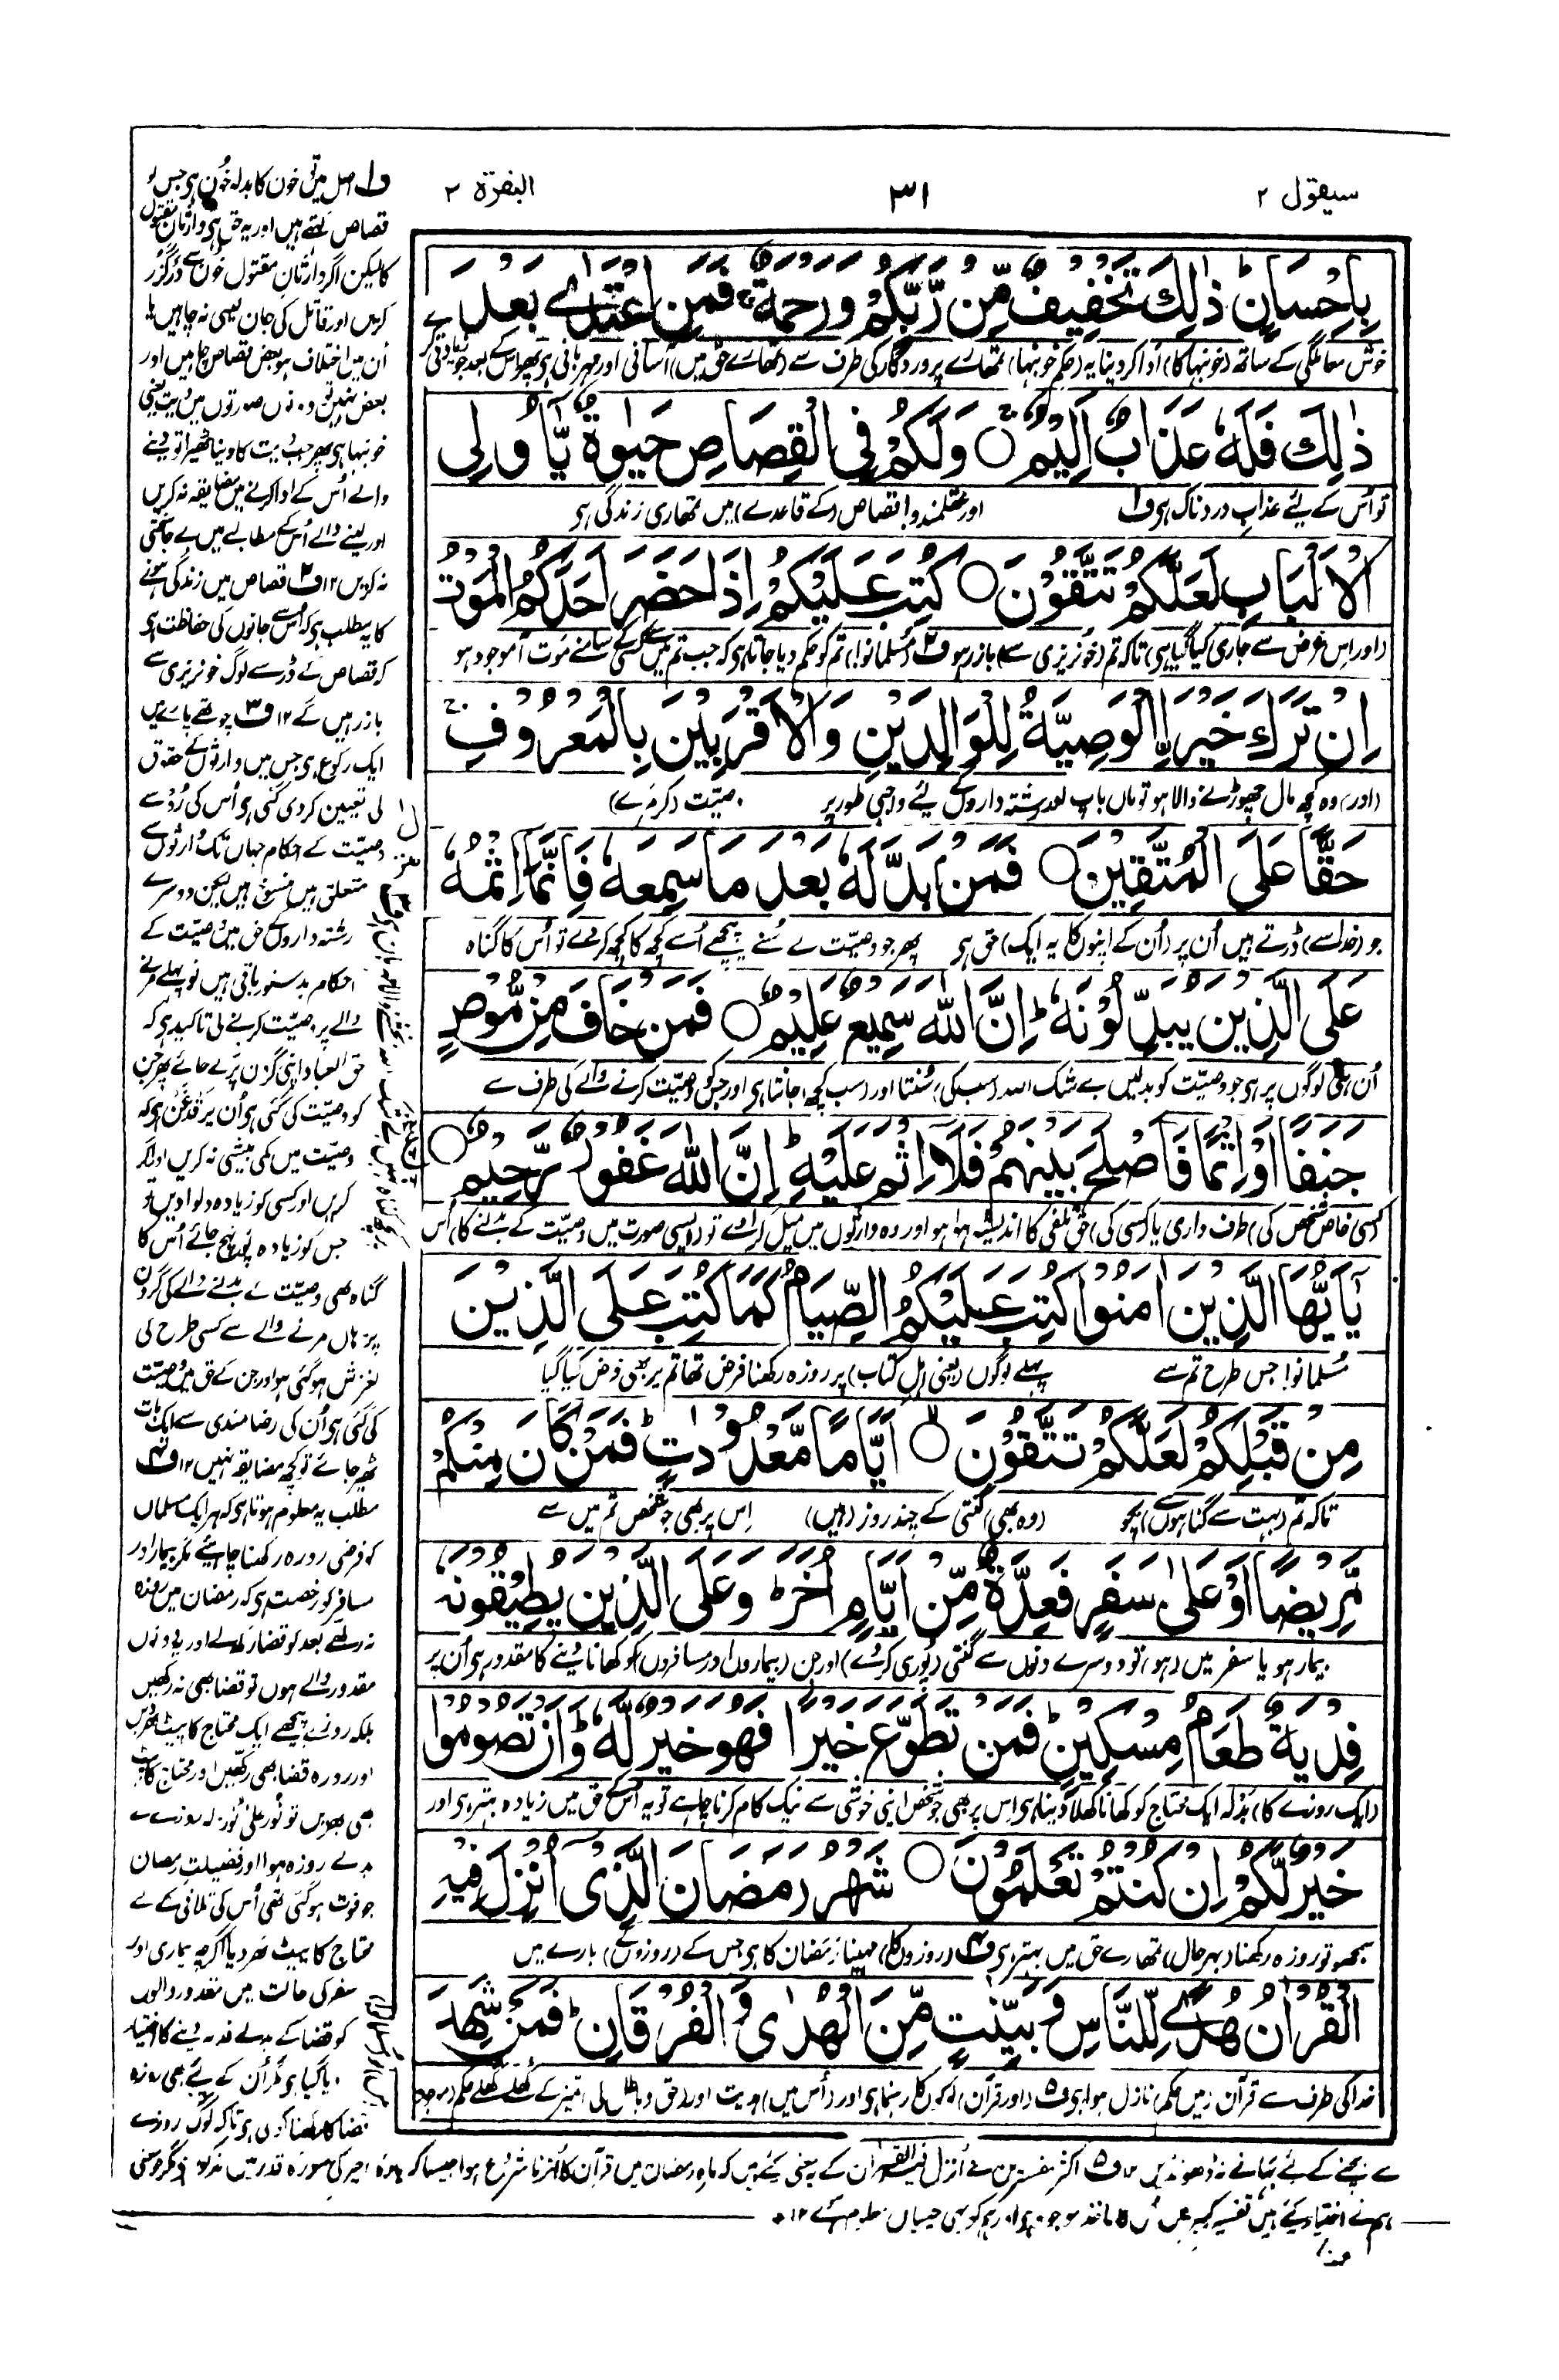 سیقول ٢
٣١
البقرة ٢
بِاِحْسَانٍ ؕ ذٰلِكَ تَخْفِيْفٌ مِّنْ رَّبِّكُمْ وَرَحْمَةٌ ؕ فَمَنِ اعْتَدٰى بَعْدَ
خوش معاملگی کے ساتھ (خونبہا کا) ادا کر دینا یہ (حکم خونبہا) تمھارے پروردگار کی طرف سے (تمھارے حق میں) آسانی اور مہربانی ہی پھر اس کے بعد جو زیادتی کرے
ذٰلِكَ فَلَهٗ عَذَابٌ اَلِيْمٌ ○ وَلَكُمْ فِى الْقِصَاصِ حَيٰوةٌ يّٰٓاُولِى
تو اُس کے لیے عذابِ دردناک ہی ف١ اور عقلمندو! قصاص (کے قاعدے) میں تمھاری زندگی ہی
الْاَلْبَابِ لَعَلَّكُمْ تَتَّقُوْنَ ○ كُتِبَ عَلَيْكُمْ اِذَا حَضَرَ اَحَدَكُمُ الْمَوْتُ
(اور اِس غرض سے جاری کیا گیا ہی) تاکہ تم (خونریزی سے) باز رہو ف٢ (مسلمانو!) تم کو حکم دیا جاتا ہی کہ جب تم میں سے کسی کے سامنے موت آموجود ہو
اِنْ تَرَكَ خَيْرَاۨ الْوَصِيَّةُ لِلْوَالِدَيْنِ وَالْاَقْرَبِيْنَ بِالْمَعْرُوْفِ ۚ
(اور) وہ کچھ مال چھوڑنے والا ہو تو ماں باپ اور رشتہ داروں کے لیے واجبی طور پر وصیّت (کرمرے)
حَقًّا عَلَى الْمُتَّقِيْنَ ○ فَمَنْۢ بَدَّلَهٗ بَعْدَ مَا سَمِعَهٗ فَاِنَّمَآ اِثْمُهٗ
جو (خدا سے) ڈرتے ہیں اُن پر (اُن کے اپنوں کا یہ ایک) حق ہی پھر جو وصیّت کے سُنے پیچھے اُسے کچھ کا کچھ کردے تو اُس کا گناہ
عَلَى الَّذِيْنَ يُبَدِّلُوْنَهٗ ؕ اِنَّ اللّٰهَ سَمِيْعٌ عَلِيْمٌ ○ فَمَنْ خَافَ مِنْ مُّوْصٍ
اُن ہی لوگوں پر ہی جو وصیّت کو بدلیں بے شک اللہ (سب کی) سُنتا اور (سب کچھ) جانتا ہی اور جس کو وصیّت کرنے والے کی طرف سے
جَنَفًا اَوْ اِثْمًا فَاَصْلَحَ بَيْنَهُمْ فَلَآ اِثْمَ عَلَيْهِ ؕ اِنَّ اللّٰهَ غَفُوْرٌ رَّحِيْمٌ ○
(کسی خاص شخص کی) طرف داری یا (کسی کی) حق تلفی کا اندیشہ ہوا ہو اور وہ وارثوں میں میل کرادے تو (ایسی صورت میں وصیّت کے بدلنے کا) اُس
يٰٓاَيُّهَا الَّذِيْنَ اٰمَنُوْا كُتِبَ عَلَيْكُمُ الصِّيَامُ كَمَا كُتِبَ عَلَى الَّذِيْنَ
مُسلمانو! جس طرح تم سے پہلے لوگوں (یعنی اہلِ کتاب) پر روزہ رکھنا فرض تھا تم پر بھی فرض کیا گیا
مِنْ قَبْلِكُمْ لَعَلَّكُمْ تَتَّقُوْنَ ○ اَيَّامًا مَّعْدُوْدٰتٍ ؕ فَمَنْ كَانَ مِنْكُمْ
تاکہ تم (بہت سے گناہوں سے) بچو (وہ بھی) گنتی کے چند روز (ہیں) اِس پر بھی جو شخص تم میں سے
مَّرِيْضًا اَوْ عَلٰى سَفَرٍ فَعِدَّةٌ مِّنْ اَيَّامٍ اُخَرَ ؕ وَعَلَى الَّذِيْنَ يُطِيْقُوْنَهٗ
بیمار ہو یا سفر میں (ہو) تو دوسرے دنوں سے گنتی (پوری کردے) اور جن (بیماروں اور مسافروں) کو کھانا دینے کا مقدور ہی اُن پر
فِدْيَةٌ طَعَامُ مِسْكِيْنٍ ؕ فَمَنْ تَطَوَّعَ خَيْرًا فَهُوَ خَيْرٌ لَّهٗ ؕ وَاَنْ تَصُوْمُوْا
(ایک روزے کا) بدلہ ایک محتاج کو کھانا کھلا دینا ہی اِس پر بھی جو شخص اپنی خوشی سے نیک کام کرنا چاہے تو یہ اُس کے حق میں زیادہ بہتر ہی اور
خَيْرٌ لَّكُمْ اِنْ كُنْتُمْ تَعْلَمُوْنَ ○ شَهْرُ رَمَضَانَ الَّذِىْٓ اُنْزِلَ فِيْهِ
سمجھو تو روزہ رکھنا (بہر حال) تمھارے حق میں بہتر ہی ف٤ (روزوں کا) مہینا رمضان کا ہی جس کے (روزوں کے) بارے میں
الْقُرْاٰنُ هُدًى لِّلنَّاسِ وَبَيِّنٰتٍ مِّنَ الْهُدٰى وَالْفُرْقَانِ ۚ فَمَنْ شَهِدَ
خدا کی طرف سے قرآن (میں حکم) نازل ہوا ہی ف٥ (اور قرآن) لوگوں کا رہنما ہی اور (اُس میں) ہدایت اور (حق و باطل کی) تمیز کے کھلے کھلے حکم (موجود
ف١ اصل میں تو خون کا بدلہ خُون ہی جس کو
قصاص کہتے ہیں اور یہ حق ہی وارثانِ مقتول
کا لیکن اگر وارثانِ مقتول خون سے درگزر
کریں اور قاتل کی جان لینی نہ چاہیں
اُن میں اختلاف ہو بعض قصاص چاہیں اور
بعض نہیں تو دونوں صورتوں میں دیت یعنی
خونبہا ہی پھر جب دیت کا دینا ٹھیرا تو دینے
والے اُس کے ادا کرنے میں مضایقہ نہ کریں
اور لینے والے اُس کے مطالبے میں بے جا سختی
نہ کریں ١٢ ف٢ قصاص میں زندگی ہونے
کا یہ مطلب ہی کہ اُس سے جانوں کی حفاظت ہی
کہ قصاص کے ڈر سے لوگ خونریزی سے
باز رہیں گے ١٢ ف٣ چوتھے پارے میں
ایک رکوع ہی جس میں وارثوں کے حقوق
کی تعیین کر دی گئی ہی اُس کی رُو سے
وصیّت کے احکام جہاں تک وارثوں سے
متعلق ہیں منسوخ ہیں لیکن دوسرے
رشتہ داروں کے حق میں وصیّت کے
احکام بدستور باقی ہیں تو پہلے مرنے
والے پر وصیّت کرنے کی تاکید ہی کہ
حق العباد اپنی گردن پر لے جائے پھر جن
کو وصیّت کی گئی ہی اُن پر قدغن ہی کہ
وصیّت میں کمی بیشی نہ کریں اور اگر
کریں اور کسی کو زیادہ دلوا دیں تو
جس کو زیادہ پہنچ جائے اُس کا
گناہ بھی وصیّت کے بدلنے والے کی گردن
پر ہاں مرنے والے سے کسی طرح کی
لغزش ہوگئی ہو اور جن کے حق میں وصیّت
کی گئی ہی اُن کی رضامندی سے ایک بات
ٹھیر جائے تو کچھ مضایقہ نہیں ١٢ ف٤
مطلب یہ معلوم ہوتا ہی کہ ہر ایک مسلمان
کو فرضی روزہ رکھنا چاہیئے مگر بیمار اور
مسافر کو رخصت ہی کہ رمضان میں روزہ
نہ رکھے بعد کو قضا رکھ لے اور یہ دونوں
مقدور والے ہوں تو قضا بھی نہ رکھیں
بلکہ روزے پیچھے ایک محتاج کا پیٹ بھردیں
اور روزہ قضا بھی رکھیں اور محتاج کا پیٹ
بھی بھریں تو نورٌ علیٰ نُور کہ روزے کے
بدلے روزہ ہوا اور فضیلتِ رمضان
جو فوت ہوگئی تھی اُس کی تلافی کے لیے
محتاج کا پیٹ بھر دیا اگرچہ بیماری اور
سفر کی حالت میں مقدور والوں
کو قضا کے بدلے فدیہ دینے کا اختیار
دیا گیا ہی مگر اُن کے لیے بھی روزہ
قضا کا رکھنا ہی تاکہ لوگ روزے
سے بچنے کے لیے بہانے نہ ڈھونڈیں ١٢ ف٥ اکثر مفسرین نے اُنزل فیہ القرآن کے یہ معنی کیے ہیں کہ ماہِ رمضان میں قرآن کا اُترنا شروع ہوا جیسا کہ پارہ اخیر کی سورہ قدر میں مذکور ہی مگر جو معنی
ہم نے اختیار کیے ہیں تفسیر کبیر میں اُس کا ماخذ موجود ہی اور ہم کو یہی چسپاں معلوم ہوئے ١٢
منہ